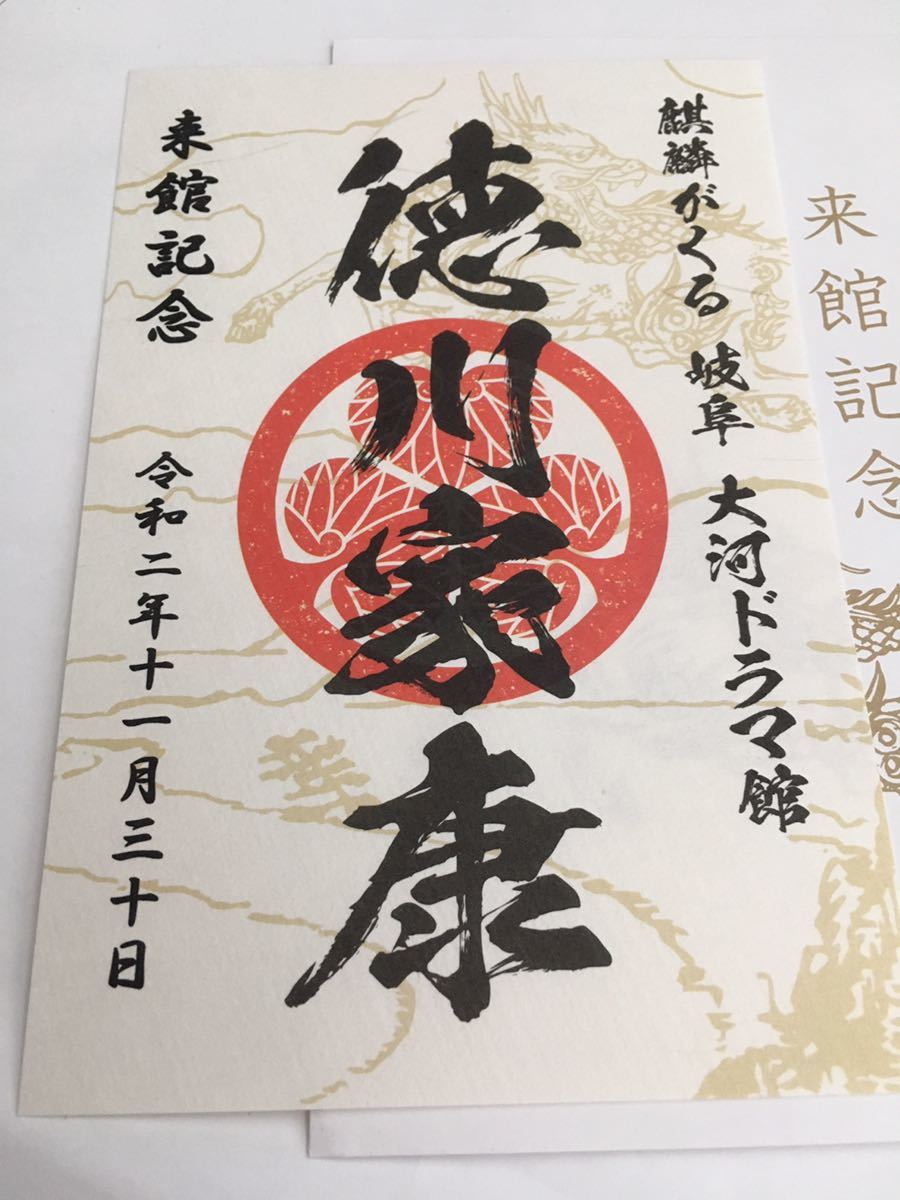 麒麟がくる 岐阜 大河ドラマ館
徳川家康
来館記念 令和二年十一月三十日
来館記念